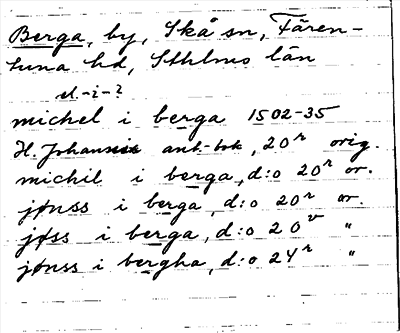 Berga, by, Skå sn, Fären-
tuna hd, Sthlms län
el. -i- ?
michel i berga 1502-35
H. Johansson ant.-bok, 20r orig.
michil i berga, d:o 20r or.
jønss i berga, d:o 20r or.
jøss i berga, d:o 20v "
jønss i bergha, d:o 24r "